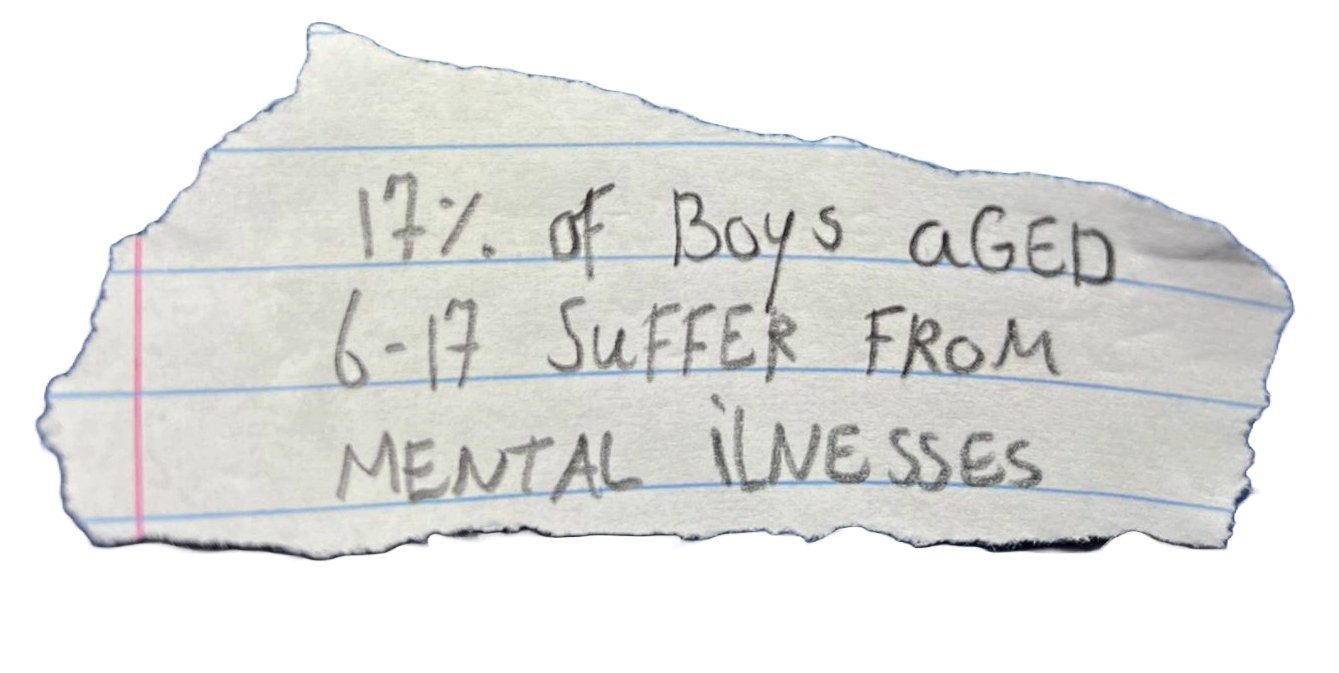 17% of Boys aGED
6-17 SuFFER FROM
MENTAL iLNESSES